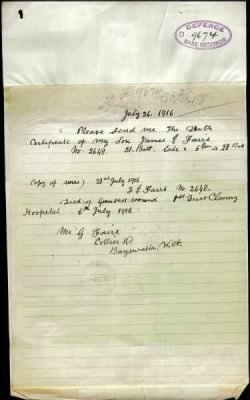 1
DEFENCE
9674
BASE RECORDS
July 26. 1916
Please send me The Death
Certificate of my Son James E Faris
No 2648. Batt. late
Copy of wire; 21st July 1916
J E Faris No 2648.
Died of Gunshot wound 1st Aust Clearing
Hospital 6th July 1916
Mr G Faris
Collier Rd
Bayswater, W.A.